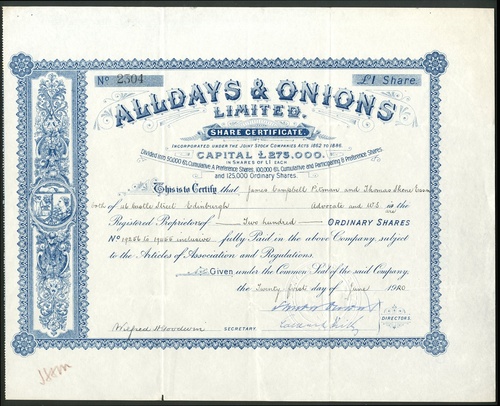 No 2304
£1 Share
ALLDAYS & ONIONS
LIMITED.
SHARE CERTIFICATE.
INCORPORATED UNDER THE JOINT STOCK COMPANIES ACTS 1862 TO 1886.
CAPITAL £275,000.
IN SHARES OF £1 EACH
Divided into 50,000 6% Cumulative A Preference Shares, 100,000 6% Cumulative and Participating B Preference Shares
and 125,000 Ordinary Shares.
This is to Certify that James Campbell Pitman and Thomas
of Castle Street Edinburgh Advocate and W.S. are
Registered Proprietors of Two hundred ORDINARY SHARES
No inclusive fully Paid in the above Company, subject
to the Articles of Association and Regulations.
Given under the Common Seal of the said Company
the Twenty first day of June 1920
Wilfred H Goodwin SECRETARY.
DIRECTORS.